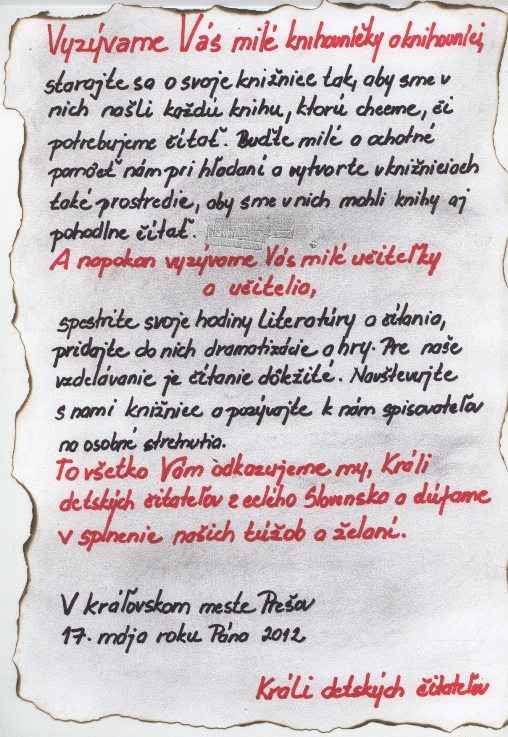 Vyzývame Vás milé knihovníčky a knihovníci,
starajte sa o svoje knižnice tak, aby sme v
nich našli každú knihu, ktorú chceme, či
potrebujeme čítať. Buďte milé a ochotné
pomôcť nám pri hľadaní a vytvorte v knižniciach
také prostredie, aby sme v nich mohli knihy aj
pohodlne čítať.
A napokon vyzývame Vás milé učiteľky
a učitelia,
spestrite svoje hodiny literatúry a čítania,
pridajte do nich dramatizácie a hry. Pre naše
vzdelávanie je čítanie dôležité. Navštevujte
s nami knižnice a pozývajte k nám spisovateľov
na osobné stretnutia.
To všetko Vám odkazujeme my, Králi
detských čitateľov z celého Slovenska a dúfame
v splnenie našich túžob a želaní.
V kráľovskom meste Prešov
17. mája roku Pána 2012
Králi detských čitateľov